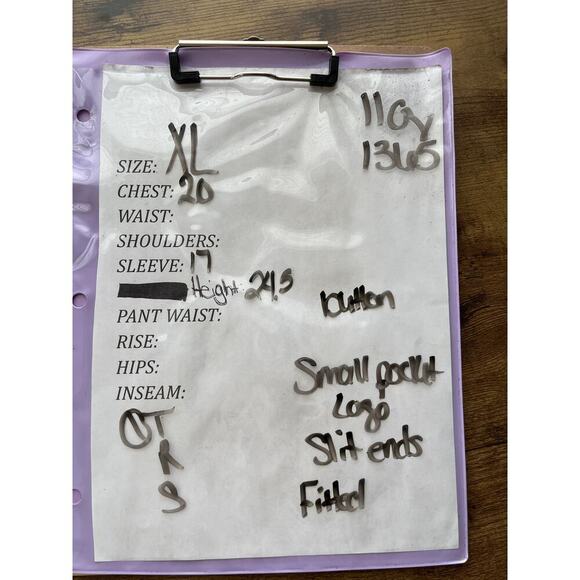 110y
1365
SIZE: XL
CHEST: 20
WAIST:
SHOULDERS:
SLEEVE: 17
Height: 24.5
button
PANT WAIST:
RISE:
HIPS:
Small pocket
INSEAM:
Logo
T
Slit ends
R
S
Fitted